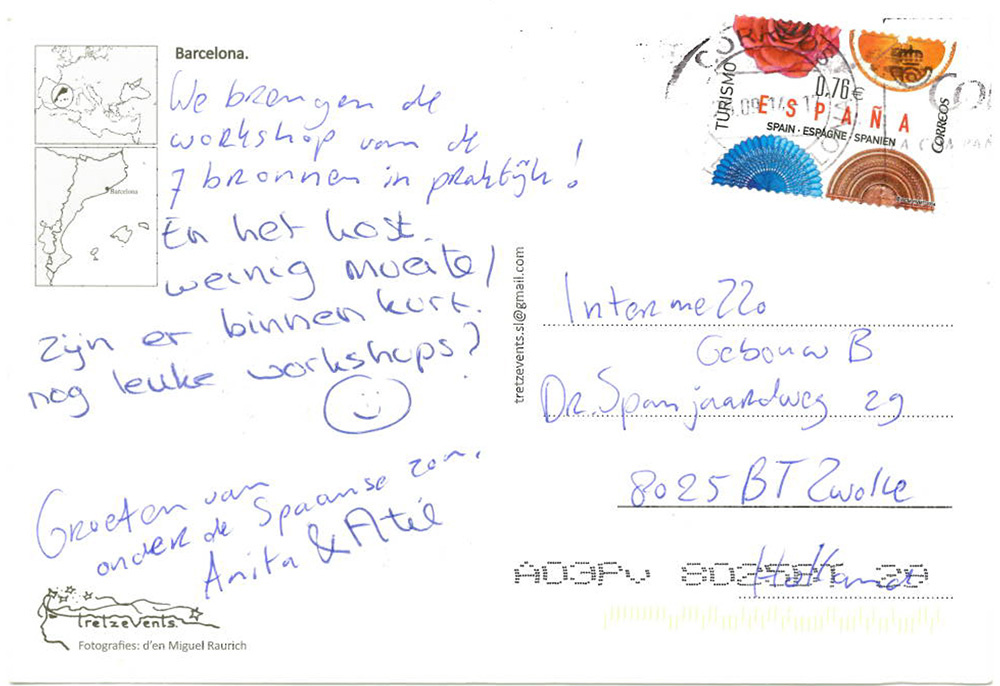 Barcelona.
We brengen de
workshop van de
7 bronnen in praktijk!
En het kost
weinig moeite!
zijn er binnenkort
nog leuke workshops?
Groeten van
onder de Spaanse zon,
Anita &
Barcelona
tretzevents.
Fotografies: d'en Miguel Raurich
tretzevents.sl@gmail.com
CORREOS
TURISMO
0,76€
ESPAÑA
SPAIN · ESPAGNE · SPANIEN
CORREOS
Intermezzo
Gebouw B
Dr. Spanjaardweg 29
8025 BT Zwolle
Holland